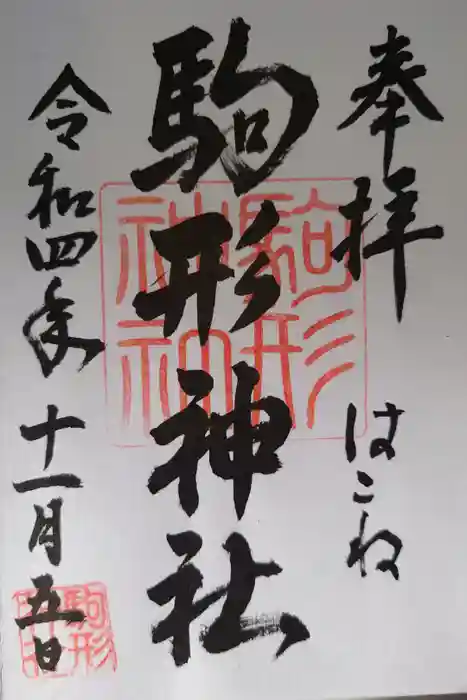 奉拝
はこね
駒形神社
令和四年
十一月五日
駒形
神社
駒形
神社